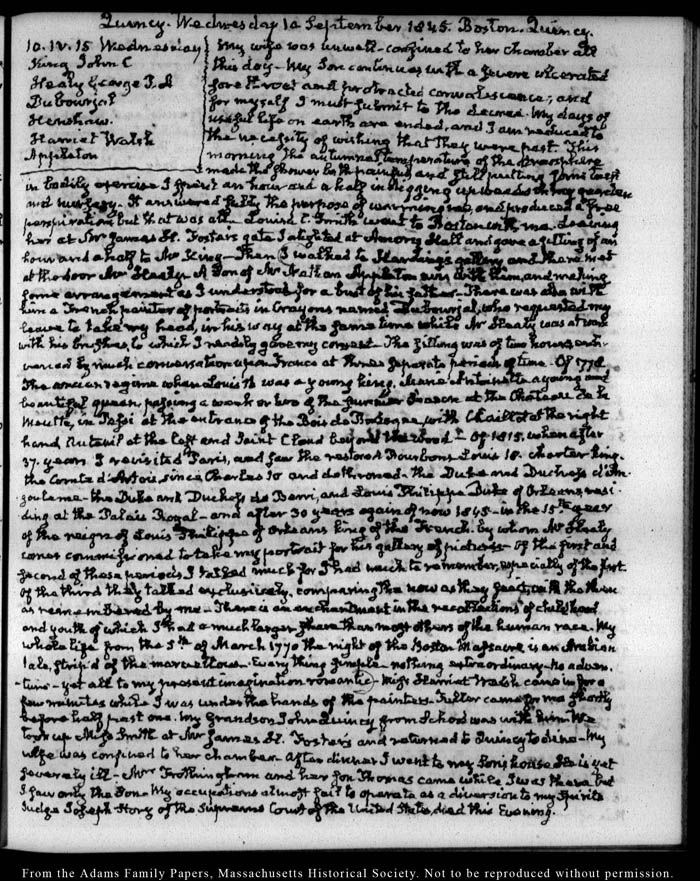 Quincy. Wednesday 10 September 1845. Boston. Quincy.
10. IV. 15 Wednesday
King John C
Healy George P. A
Dubourjal
Henshaw.
Harriet Welsh
Appleton
My wife was unwell - confined to her chamber all
this day - My Son continues with a severe ulcerated
sore throat and protracted convalescence; and
for myself I must submit to the decree. My days of
useful life on earth are ended, and I am reduced to
the necessity of wishing that they were past. This
morning the autumnal temperature of the atmosphere
made the shower bath painful, and still putting
in bodily exercise I spent an hour and a half in digging up weeds in my garden
and nursery. It answered fully the purpose of warming me, and produced a free
perspiration but that was all. Louisa C. Smith went to Boston with me. Leaving
her at Mr James H. Foster's gate I alighted at Amory Hall and gave a sitting of an
hour and a half to Mr King - Then I walked to Harding's gallery and there met
at the door Mr Healy. A Son of Mr Nathan Appleton was with him, and making
some arrangement as I understood for a bust of his father - There was also with
him a French painter of portraits in Crayons named Dubourjal, who requested my
leave to take my head, in his way at the same time while Mr Healy was at work
with his brushes, to which I readily gave my consent. The sitting was of two hours,
varied by much conversation upon France at three separate periods of time. Of 1778.
The ancien regime when Louis 16 was a young king, Marie Antoinette a young and
beautiful queen passing a week or two of the summer season at the Chateau de la
Meutte, in Passi at the entrance of the Bois de Boulogne, with Chaillot at the right
hand, Auteuil at the left and Saint Cloud beyond the Wood - Of 1815. when after
37. years I revisited Paris, and saw the restored Bourbons Louis 18. charter king.
the Comte d'Artois, since Charles 10 and dethroned - the Duke and Duchess d'An-
gouleme - the Duke and Duchess de Berri, and Louis Philippe Duke of Orleans, resi-
ding at the Palais Royal - and after 30 years again of now 1845 - in the 15th year
of the reign of Louis Philippe of Orleans king of the French. by whom Mr Healy
comes commissioned to take my portrait for his gallery of pictures - Of the first and
second of these periods I talked much for I had much to remember, especially of the first.
of the third they talked exclusively, comparing the now as they
as remembered by me - There is an enchantment in the recollections of childhood
and youth of which I had a much larger share than most others of the human race. My
whole life from the 5th of March 1770 the night of the Boston Massacre is an Arabian
tale, strip'd of the marvellous. Every thing simple - nothing extraordinary - no adven-
ture - yet all to my present imagination romantic - Miss Harriet Welsh came in for a
few minutes while I was under the hands of the painters - Fuller came for me shortly
before half past one. My Grandson John Quincy from School was with him. We
took up Miss Smith at Mr James H. Foster's and returned to Quincy to dine - My
wife was confined to her chamber. After dinner I went to my Son's house He is yet
severely ill - Mrs Frothingham and her Son Thomas came while I was there but
I saw only the Son - My occupations almost fail to operate as a diversion to my Spirits
Judge Joseph Story of the Supreme Court of the United States, died this Evening.
From the Adams Family Papers, Massachusetts Historical Society. Not to be reproduced without permission.